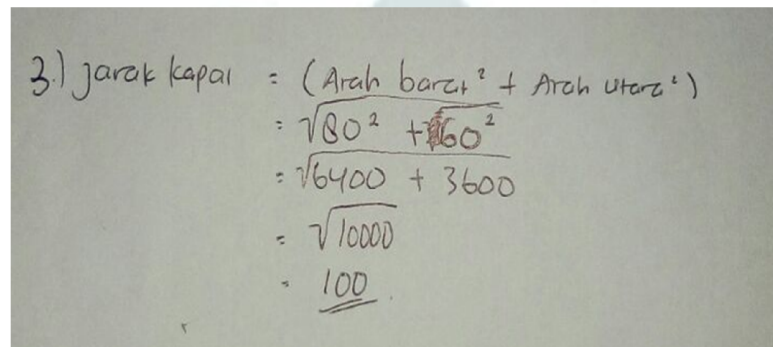 3.) jarak kapal = (Arah barat² + Arah utara²)
= √80² + 60²
= √6400 + 3600
= √10000
= 100